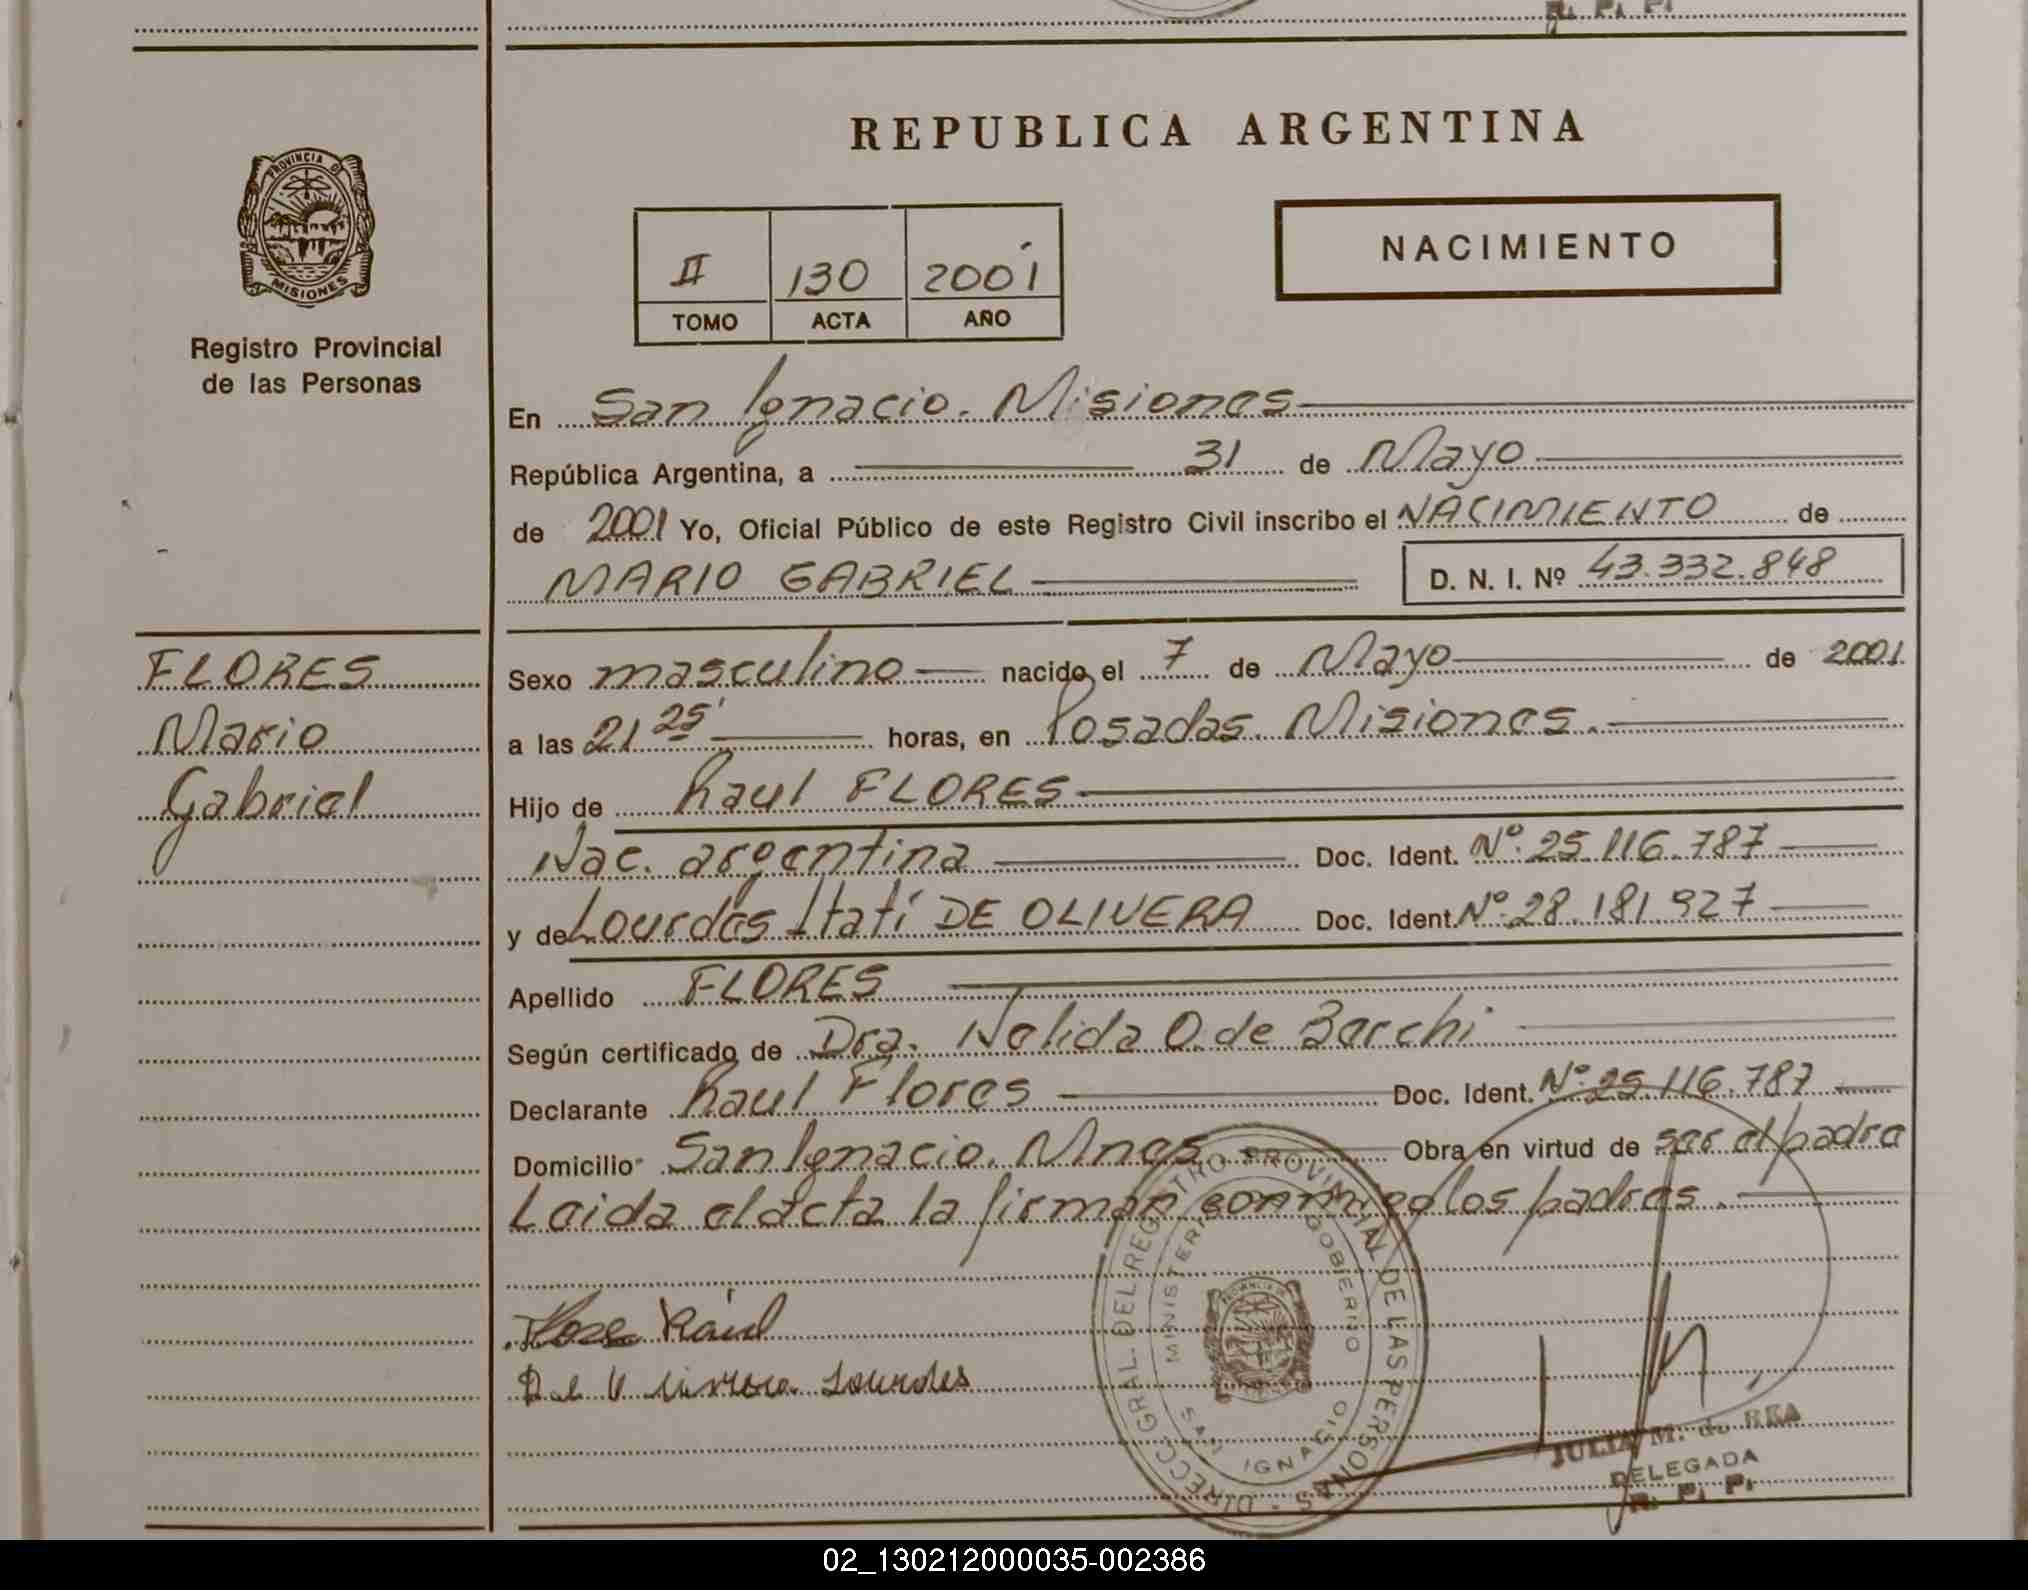 R. P. P.
PROVINCIA DE
MISIONES
Registro Provincial
de las Personas
REPUBLICA ARGENTINA
II 130 2001
TOMO ACTA AÑO
NACIMIENTO
En San Ignacio. Misiones
República Argentina, a 31 de Mayo
de 2001 Yo, Oficial Público de este Registro Civil inscribo el NACIMIENTO de
MARIO GABRIEL D. N. I. Nº 43.332.848
FLORES
Mario
Gabriel
Sexo masculino nacido el 7 de Mayo de 2001
a las 21 25' horas, en Posadas. Misiones.
Hijo de Raul FLORES
Nac. argentina Doc. Ident. Nº: 25.116.787
y de Lourdes Itatí DE OLIVERA Doc. Ident. Nº: 28.181.927
Apellido FLORES
Según certificado de Dra. Nelida O. de Barchi
Declarante Raul Flores Doc. Ident. Nº: 25.116.787
Domicilio San Ignacio. Mnes Obra en virtud de ser el padre
Leida el acta la firman conmigo los padres.
Raúl
Lourdes
DIRECC. GRAL. DEL REGISTRO PROVINCIAL DE LAS PERSONAS
MINISTERIO GOBIERNO
SAN IGNACIO
JULIA M. de REA
DELEGADA
R. P. P.
02_130212000035-002386